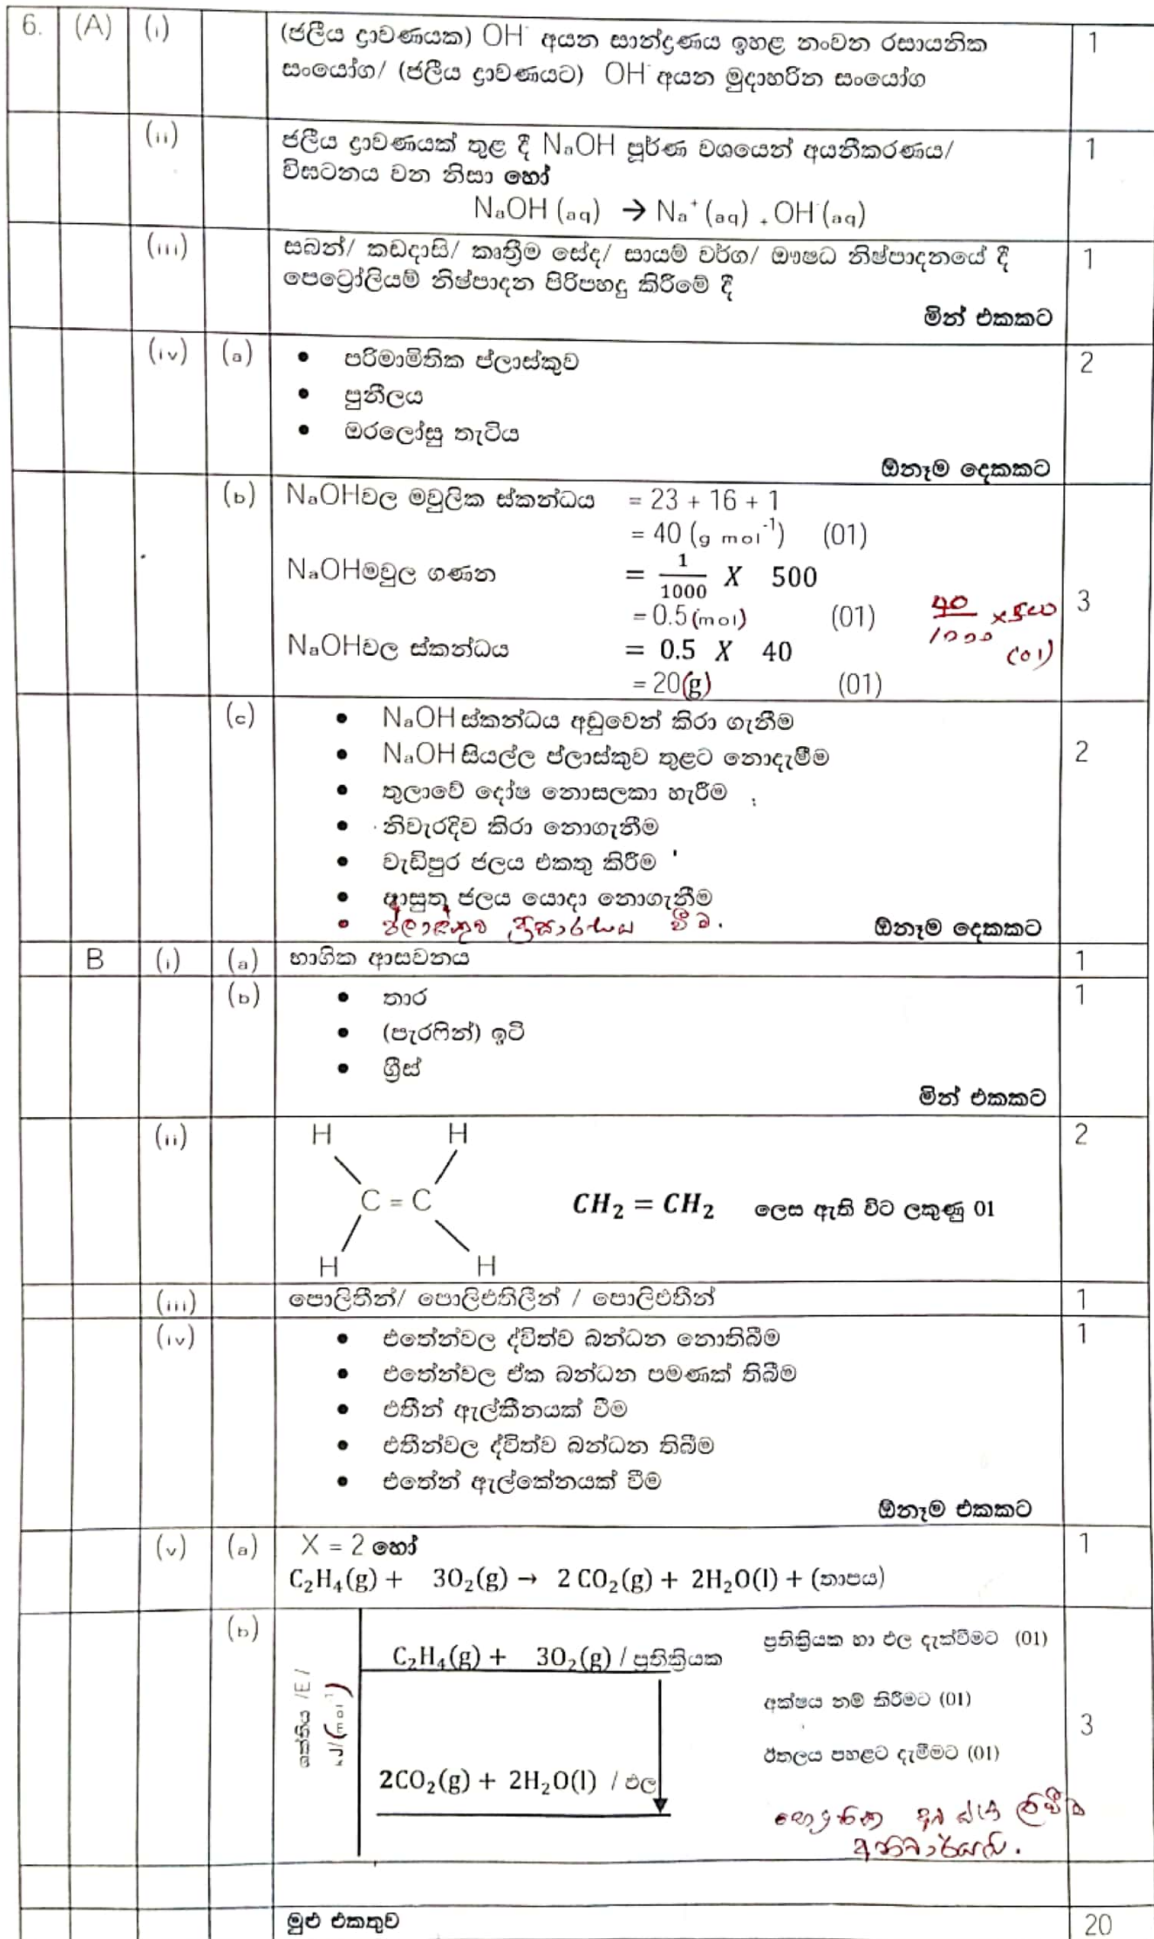 6. (A) (i) (ජලීය ද්‍රාවණයක) OH⁻ අයන සාන්ද්‍රණය ඉහළ නංවන රසායනික 1
සංයෝග/ (ජලීය ද්‍රාවණයට) OH⁻ අයන මුදාහරින සංයෝග
(ii) ජලීය ද්‍රාවණයක් තුළ දී NaOH පූර්ණ වශයෙන් අයනීකරණය/ 1
විඝටනය වන නිසා හෝ
NaOH (aq) → Na⁺ (aq) + OH⁻(aq)
(iii) සබන්/ කඩදාසි/ කෘත්‍රීම සේද/ සායම් වර්ග/ ඖෂධ නිෂ්පාදනයේ දී 1
පෙට්‍රෝලියම් නිෂ්පාදන පිරිපහදු කිරීමේ දී
මින් එකකට
(iv) (a) • පරිමාමිතික ප්ලාස්කුව 2
• පුනීලය
• ඔරලෝසු තැටිය
ඕනෑම දෙකකට
(b) NaOHවල මවුලික ස්කන්ධය = 23 + 16 + 1
= 40 (g mol⁻¹) (01)
NaOHමවුල ගණන = 1/1000 X 500
= 0.5(mol) (01) 40/1000 x500 3
NaOHවල ස්කන්ධය = 0.5 X 40 (01)
= 20(g) (01)
(c) • NaOH ස්කන්ධය අඩුවෙන් කිරා ගැනීම
• NaOH සියල්ල ප්ලාස්කුව තුළට නොදැමීම 2
• තුලාවේ දෝෂ නොසලකා හැරීම
• නිවැරදිව කිරා නොගැනීම
• වැඩිපුර ජලය එකතු කිරීම
• ආසුත ජලය යොදා නොගැනීම
• ප්ලාස්කුව ප්‍රසාරණය වීම.
ඕනෑම දෙකකට
B (i) (a) භාගික ආසවනය 1
(b) • තාර 1
• (පැරෆින්) ඉටි
• ග්‍රීස්
මින් එකකට
(ii) H H 2
C = C CH₂ = CH₂ ලෙස ඇති විට ලකුණු 01
H H
(iii) පොලිතීන්/ පොලිඑතිලීන් / පොලිඑතීන් 1
(iv) • එතේන්වල ද්විත්ව බන්ධන නොතිබීම 1
• එතේන්වල ඒක බන්ධන පමණක් තිබීම
• එතීන් ඇල්කීනයක් වීම
• එතීන්වල ද්විත්ව බන්ධන තිබීම
• එතේන් ඇල්කේනයක් වීම
ඕනෑම එකකට
(v) (a) X = 2 හෝ 1
C₂H₄(g) + 3O₂(g) → 2 CO₂(g) + 2H₂O(l) + (තාපය)
(b) ප්‍රතික්‍රියක හා ඵල දැක්වීමට (01)
C₂H₄(g) + 3O₂(g) / ප්‍රතික්‍රියක
ශක්තිය /E /
kJ/(mol⁻¹)
අක්ෂය නම් කිරීමට (01)
3
ඊතලය පහළට දැමීමට (01)
2CO₂(g) + 2H₂O(l) / ඵල
ලිවීම
අනිවාර්යයි.
මුළු එකතුව 20